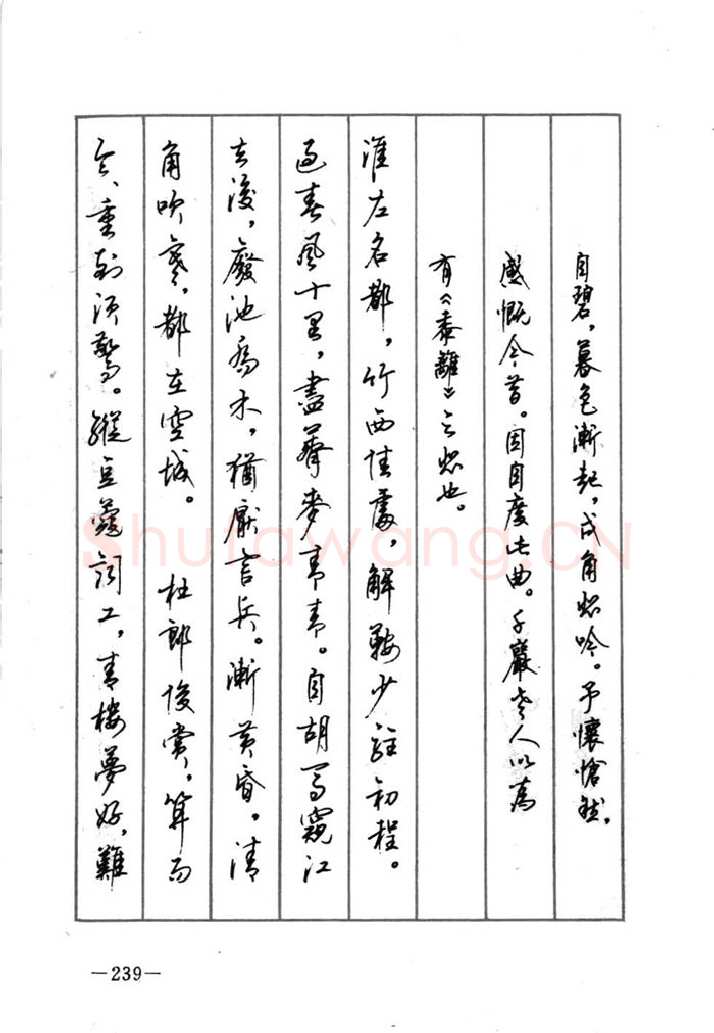 自碧，暮色漸起，戍角悲吟。予懷愴然，
感慨今昔。因自度此曲。千巖老人以為
有《黍離》之悲也。
淮左名都，竹西佳處，解鞍少駐初程。
過春風十里，盡薺麥青青。自胡馬窺江
去後，廢池喬木，猶厭言兵。漸黃昏。清
角吹寒，都在空城。 杜郎俊賞，算而
今、重到須驚。縱豆蔻詞工，青樓夢好，難
Shufawang.CN
—239—